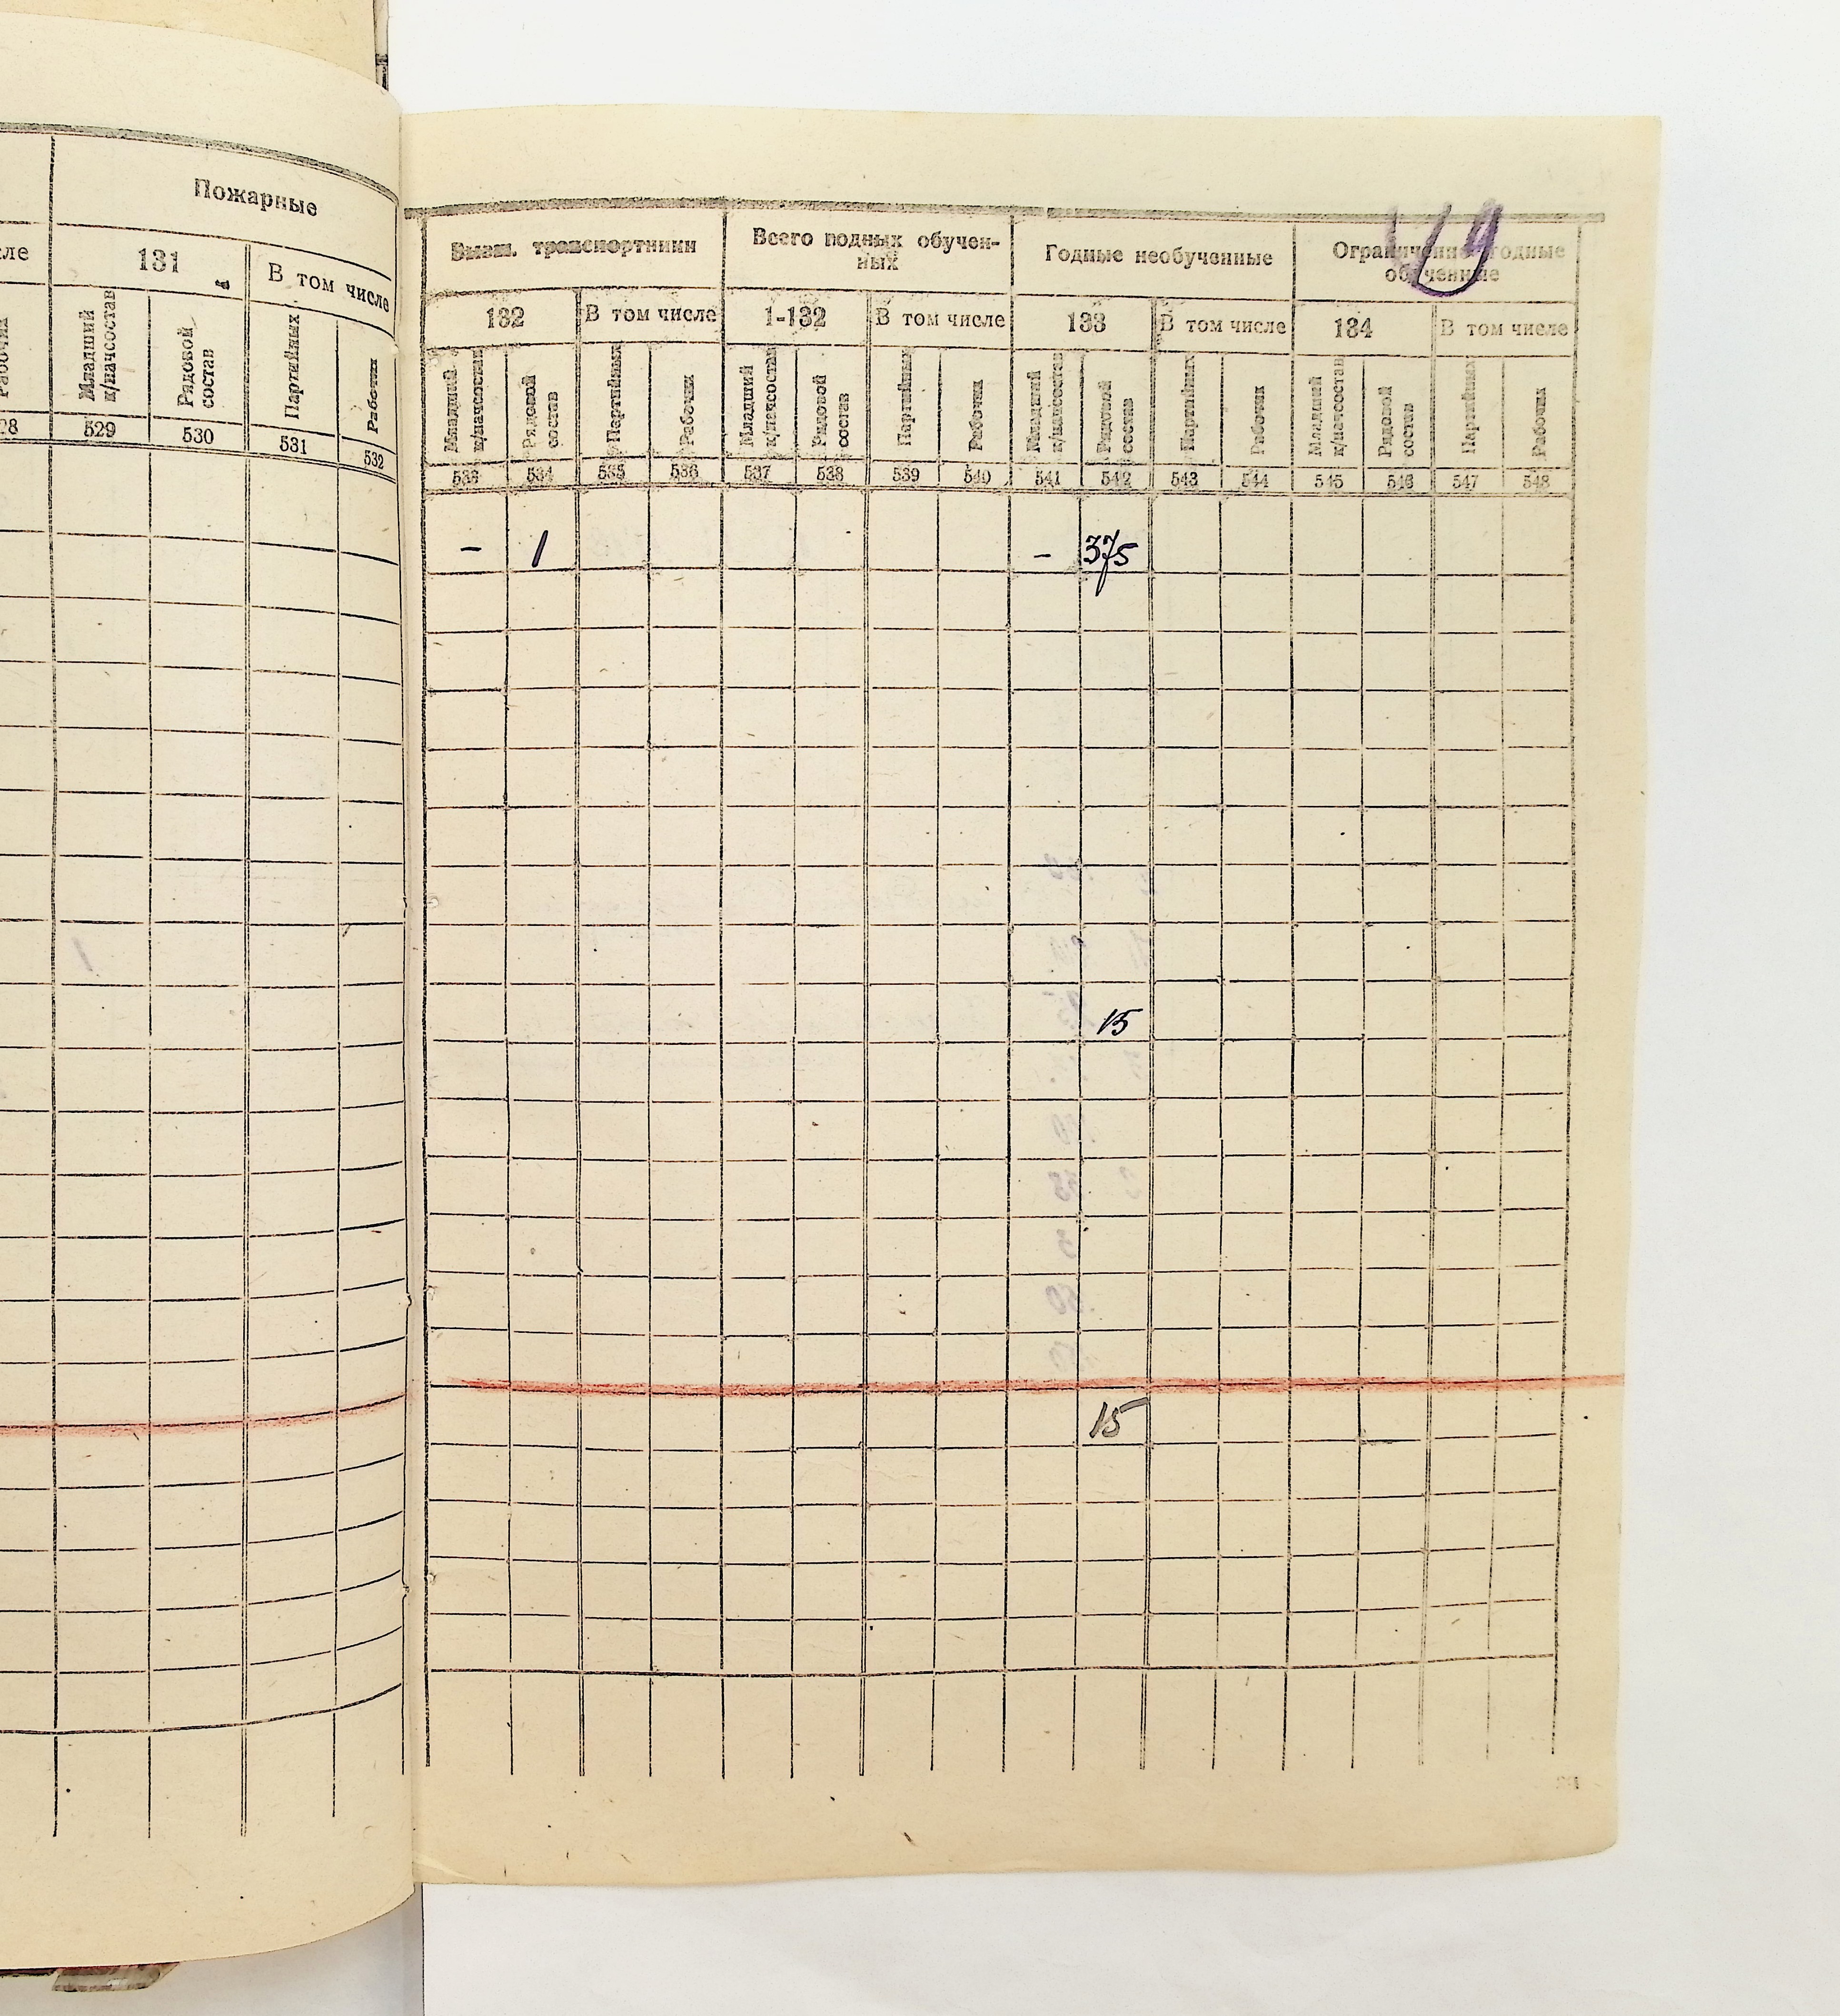 Пожарные
131
В том числе
Младший к/начсостав
Рядовой состав
Партийных
Рабочих
529 530 531 532
транспортники
Всего годных обучен-
ных
Годные необученные
Ограниченно годные
обученные
132 В том числе 1-132 В том числе 133 В том числе 134 В том числе
Младший к/начсостав
Рядовой состав
Партийных
Рабочих
Младший к/начсостав
Рядовой состав
Партийных
Рабочих
Младший к/начсостав
Рядовой состав
Партийных
Рабочих
Младший к/начсостав
Рядовой состав
Партийных
Рабочих
533 534 535 536 537 538 539 540 541 542 543 544 545 546 547 548
- 1 - 375
15
15